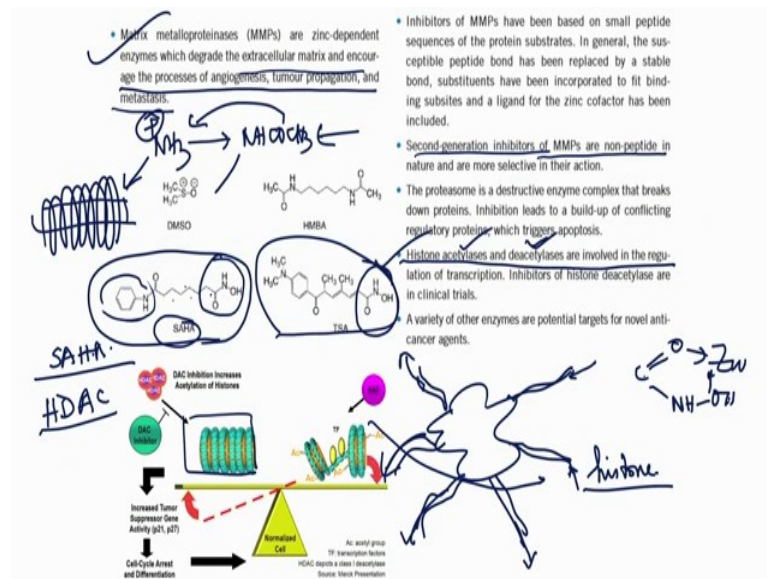 • Matrix metalloproteinases (MMPs) are zinc-dependent
enzymes which degrade the extracellular matrix and encour-
age the processes of angiogenesis, tumour propagation, and
metastasis.
+
NH3
NHCOCH3
H3C
H3C
S
O
DMSO
H3C
O
H
N
N
H
O
CH3
HMBA
N
H
O
O
H
N
OH
SAHA
H3C
H3C
N
CH3 CH3
O
O
H
N
OH
TSA
SAHA.
HDAC
HDAC
HDAC
HDAC
DAC Inhibition Increases
Acetylation of Histones
DAC
Inhibitor
Increased Tumor
Suppressor Gene
Activity (p21, p27)
Cell-Cycle Arrest
and Differentiation
TF
Ac
Ac
Ac
Ac
Normalized
Cell
Ac: acetyl group
TF: transcription factors
HDAC depicts a class I deacetylase
Source: Merck Presentation
• Inhibitors of MMPs have been based on small peptide
sequences of the protein substrates. In general, the sus-
ceptible peptide bond has been replaced by a stable
bond, substituents have been incorporated to fit bind-
ing subsites and a ligand for the zinc cofactor has been
included.
• Second-generation inhibitors of MMPs are non-peptide in
nature and are more selective in their action.
• The proteasome is a destructive enzyme complex that breaks
down proteins. Inhibition leads to a build-up of conflicting
regulatory proteins, which triggers apoptosis.
Histone acetylases and deacetylases are involved in the regu-
lation of transcription. Inhibitors of histone deacetylase are
in clinical trials.
• A variety of other enzymes are potential targets for novel anti-
cancer agents.
C
O
Zn
NH-OH
histone